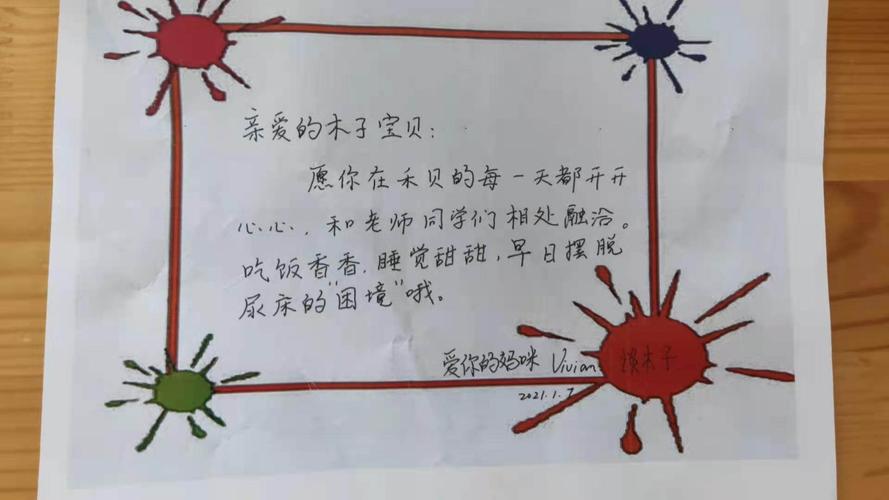 亲爱的木子宝贝：
愿你在禾贝的每一天都开开
心心，和老师同学们相处融洽。
吃饭香香，睡觉甜甜，早日摆脱
尿床的"困境"哦。
爱你的妈咪 Vivian 木子
2021.1.7